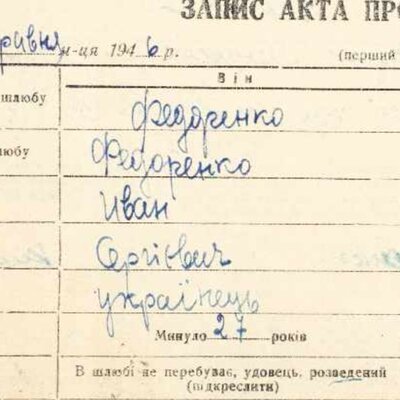 ЗАПИС АКТА ПРО
равня м-ця 1946 р.
(перший
Він
шлюбу
Федоренко
любу
Федоренко
Иван
Сергієвич
українець
Минуло 27 років
В шлюбі не перебуває, удовець, розведений
(підкреслити)